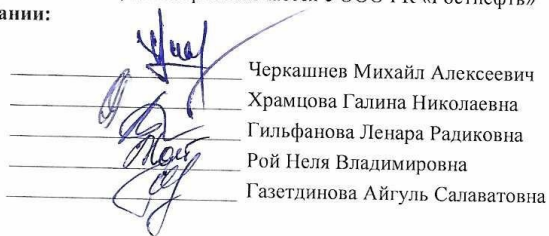 ООО РК «Ростнефть»
ании:
Черкашнев Михаил Алексеевич
Храмцова Галина Николаевна
Гильфанова Ленара Радиковна
Рой Неля Владимировна
Газетдинова Айгуль Салаватовна